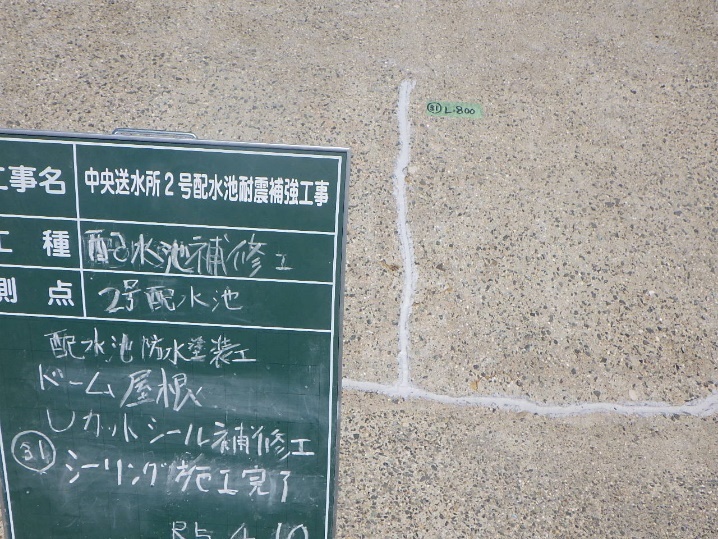 ㉛ L-800
工事名 中央送水所2号配水池耐震補強工事
工種 配水池補修工
測点 2号配水池
配水池防水塗装工
ドーム屋根
Uカットシール補修工
㉛ シーリング施工完了
R5.4.10